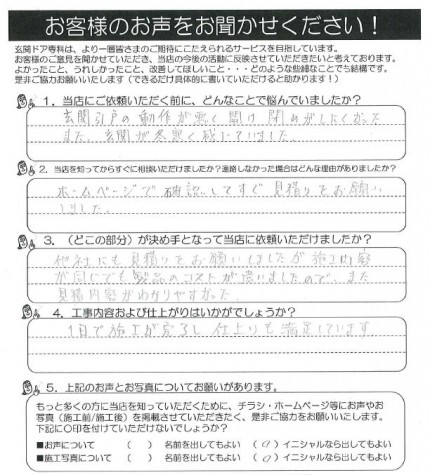 お客様のお声をお聞かせください！
玄関ドア専科は、より一層皆さまのご期待にこたえられるサービスを目指しています。
お客様のご意見を聞かせていただき、当店の今後の活動に反映させていただきたいと考えております。
よかったこと、うれしかったこと、改善してほしいこと・・・どのような些細なことでも結構です。
是非ご協力お願いいたします（できるだけ具体的に書いていただけると助かります！）
1．当店にご依頼いただく前に、どんなことで悩んでいましたか？
玄関引戸の動作が悪く開け閉めがしにくかった
また、玄関が冬寒く感じていました。
2．当店を知ってからすぐに相談いただけましたか？連絡しなかった場合はどんな理由がありましたか？
ホームページで確認してすぐ見積りをお願い
しました。
3．（どこの部分）が決め手となって当店に依頼いただけましたか？
他社にも見積りをお願いしましたが施工内容
が同じでも製品のコストが違いましたので、また
見積内容がわかりやすかった。
4．工事内容および仕上がりはいかがでしょうか？
1日で施工が完了し仕上りも満足しています
5．上記のお声とお写真についてお願いがあります。
もっと多くの方に当店を知っていただくために、チラシ・ホームページ等にお声やお
写真（施工前/施工後）を掲載させていただきたく、是非ご協力をお願いいたします。
下記に〇印を付けていただけないでしょうか？
■お声について （ ） 名前を出してもよい （〇）イニシャルなら出してもよい
■施工写真について （ ） 名前を出してもよい （〇）イニシャルなら出してもよい